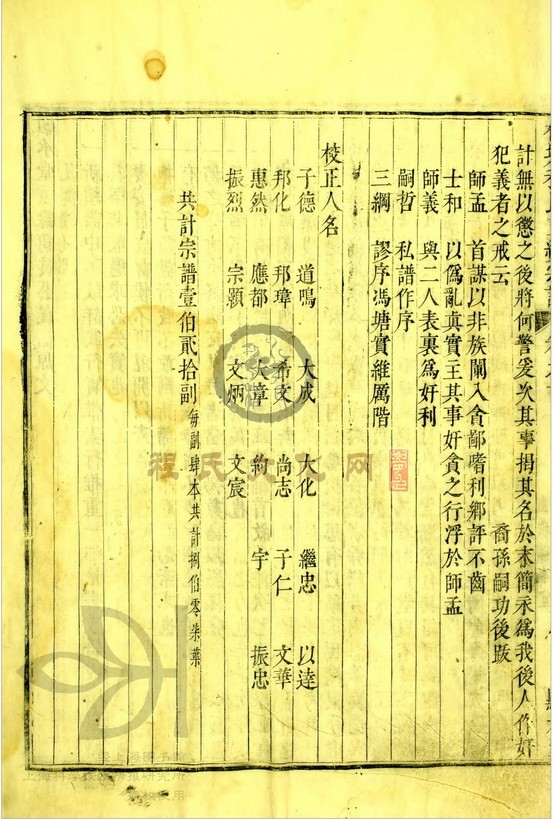 計無以懲之後將何警爰次其事揭其名於末簡永爲我後人作奸
犯義者之戒云　裔孫嗣功後跋
師孟　首謀以非族闌入貪鄙嗜利鄉評不齒
士和　以僞亂真實主其事奸貪之行浮於師孟
師義　與二人表裏爲奸利
嗣哲　私譜作序
三綱　謬序馮塘實維厲階
校正人名
子德　道鳴　大成　大化　繼忠　以達
邦化　邦瑋　希文　尚志　子仁　文華
惠然　應都　大章　約　宇　振忠
振烈　宗顥　文炳　文宸
共計宗譜壹伯貳拾副　每副肆本共計捌伯零柒葉
程氏文化网